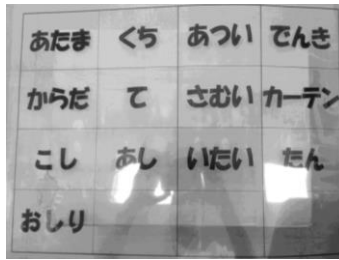 あたま くち あつい でんき
からだ て さむい カーテン
こし あし いたい たん
おしり